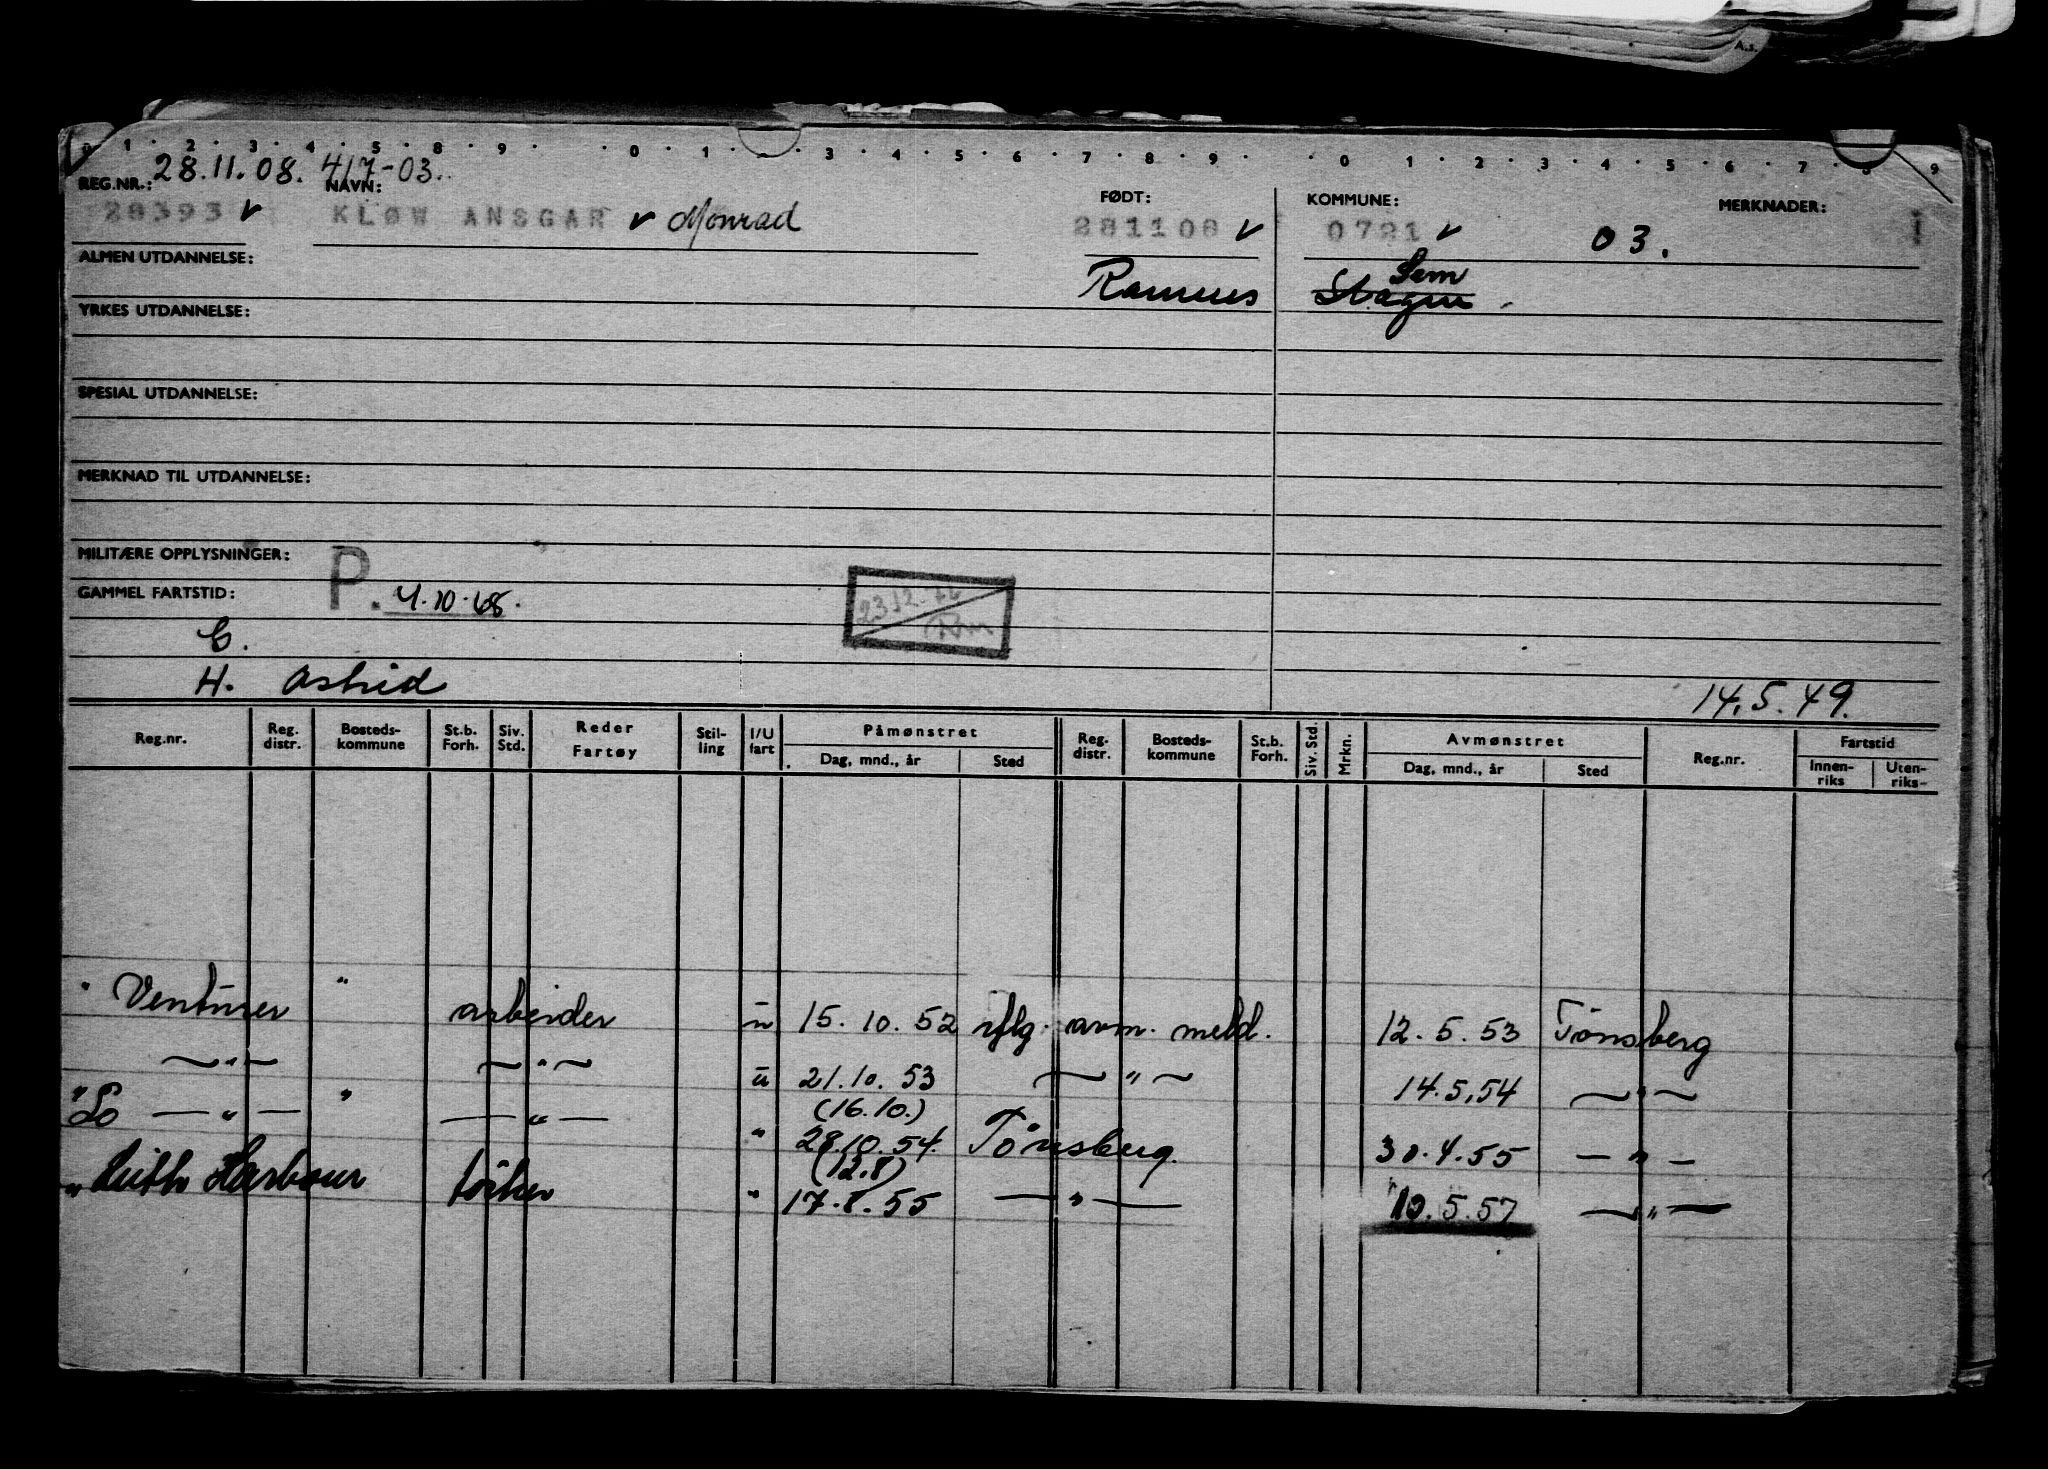 A.s.
0 · 1 · 2 · 3 · 4 · 5 · 8 · 9 · · 0 · 1 · · 3 · 4 · 5 · 6 · 7 · 8 · 9 · · 0 · 1 · 2 · 3 · 4 · 5 · 6 · 7 · 8 · 9
28.11.08. 417-03.
REG.NR.: NAVN: FØDT: KOMMUNE: MERKNADER:
28393 ✓ KLØW ANSGAR ✓ Monrad 281108 ✓ 0721 ✓ 03. I
ALMEN UTDANNELSE:
Sem
Ramnes Stagen
YRKES UTDANNELSE:
SPESIAL UTDANNELSE:
MERKNAD TIL UTDANNELSE:
MILITÆRE OPPLYSNINGER:
P. 4.10.68.
GAMMEL FARTSTID:
23.12.76
E.
H. Astrid
14.5.49.
Reg.nr. Reg. distr. Bosteds-kommune St.b. Forh. Siv. Std. Reder Fartøy Stil-ling I/U fart Påmønstret Dag, mnd., år Sted Reg. distr. Bosteds-kommune St.b. Forh. Siv. Std. Mrkn. Avmønstret Dag, mnd., år Sted Reg.nr. Fartstid Innen-riks Uten-riks-
" Venturer " arbeider u 15.10.52 iflg. avm. meld. 12.5.53 Tönsberg
—"— —"— u 21.10.53 —"— 14.5.54 —"—
(16.10.)
" So —"— " —"— " 28.10.54. Tönsberg. 30.4.55 —"—
(12.8)
" Leith Harbour " 17.8.55 —"— 10.5.57 —"—